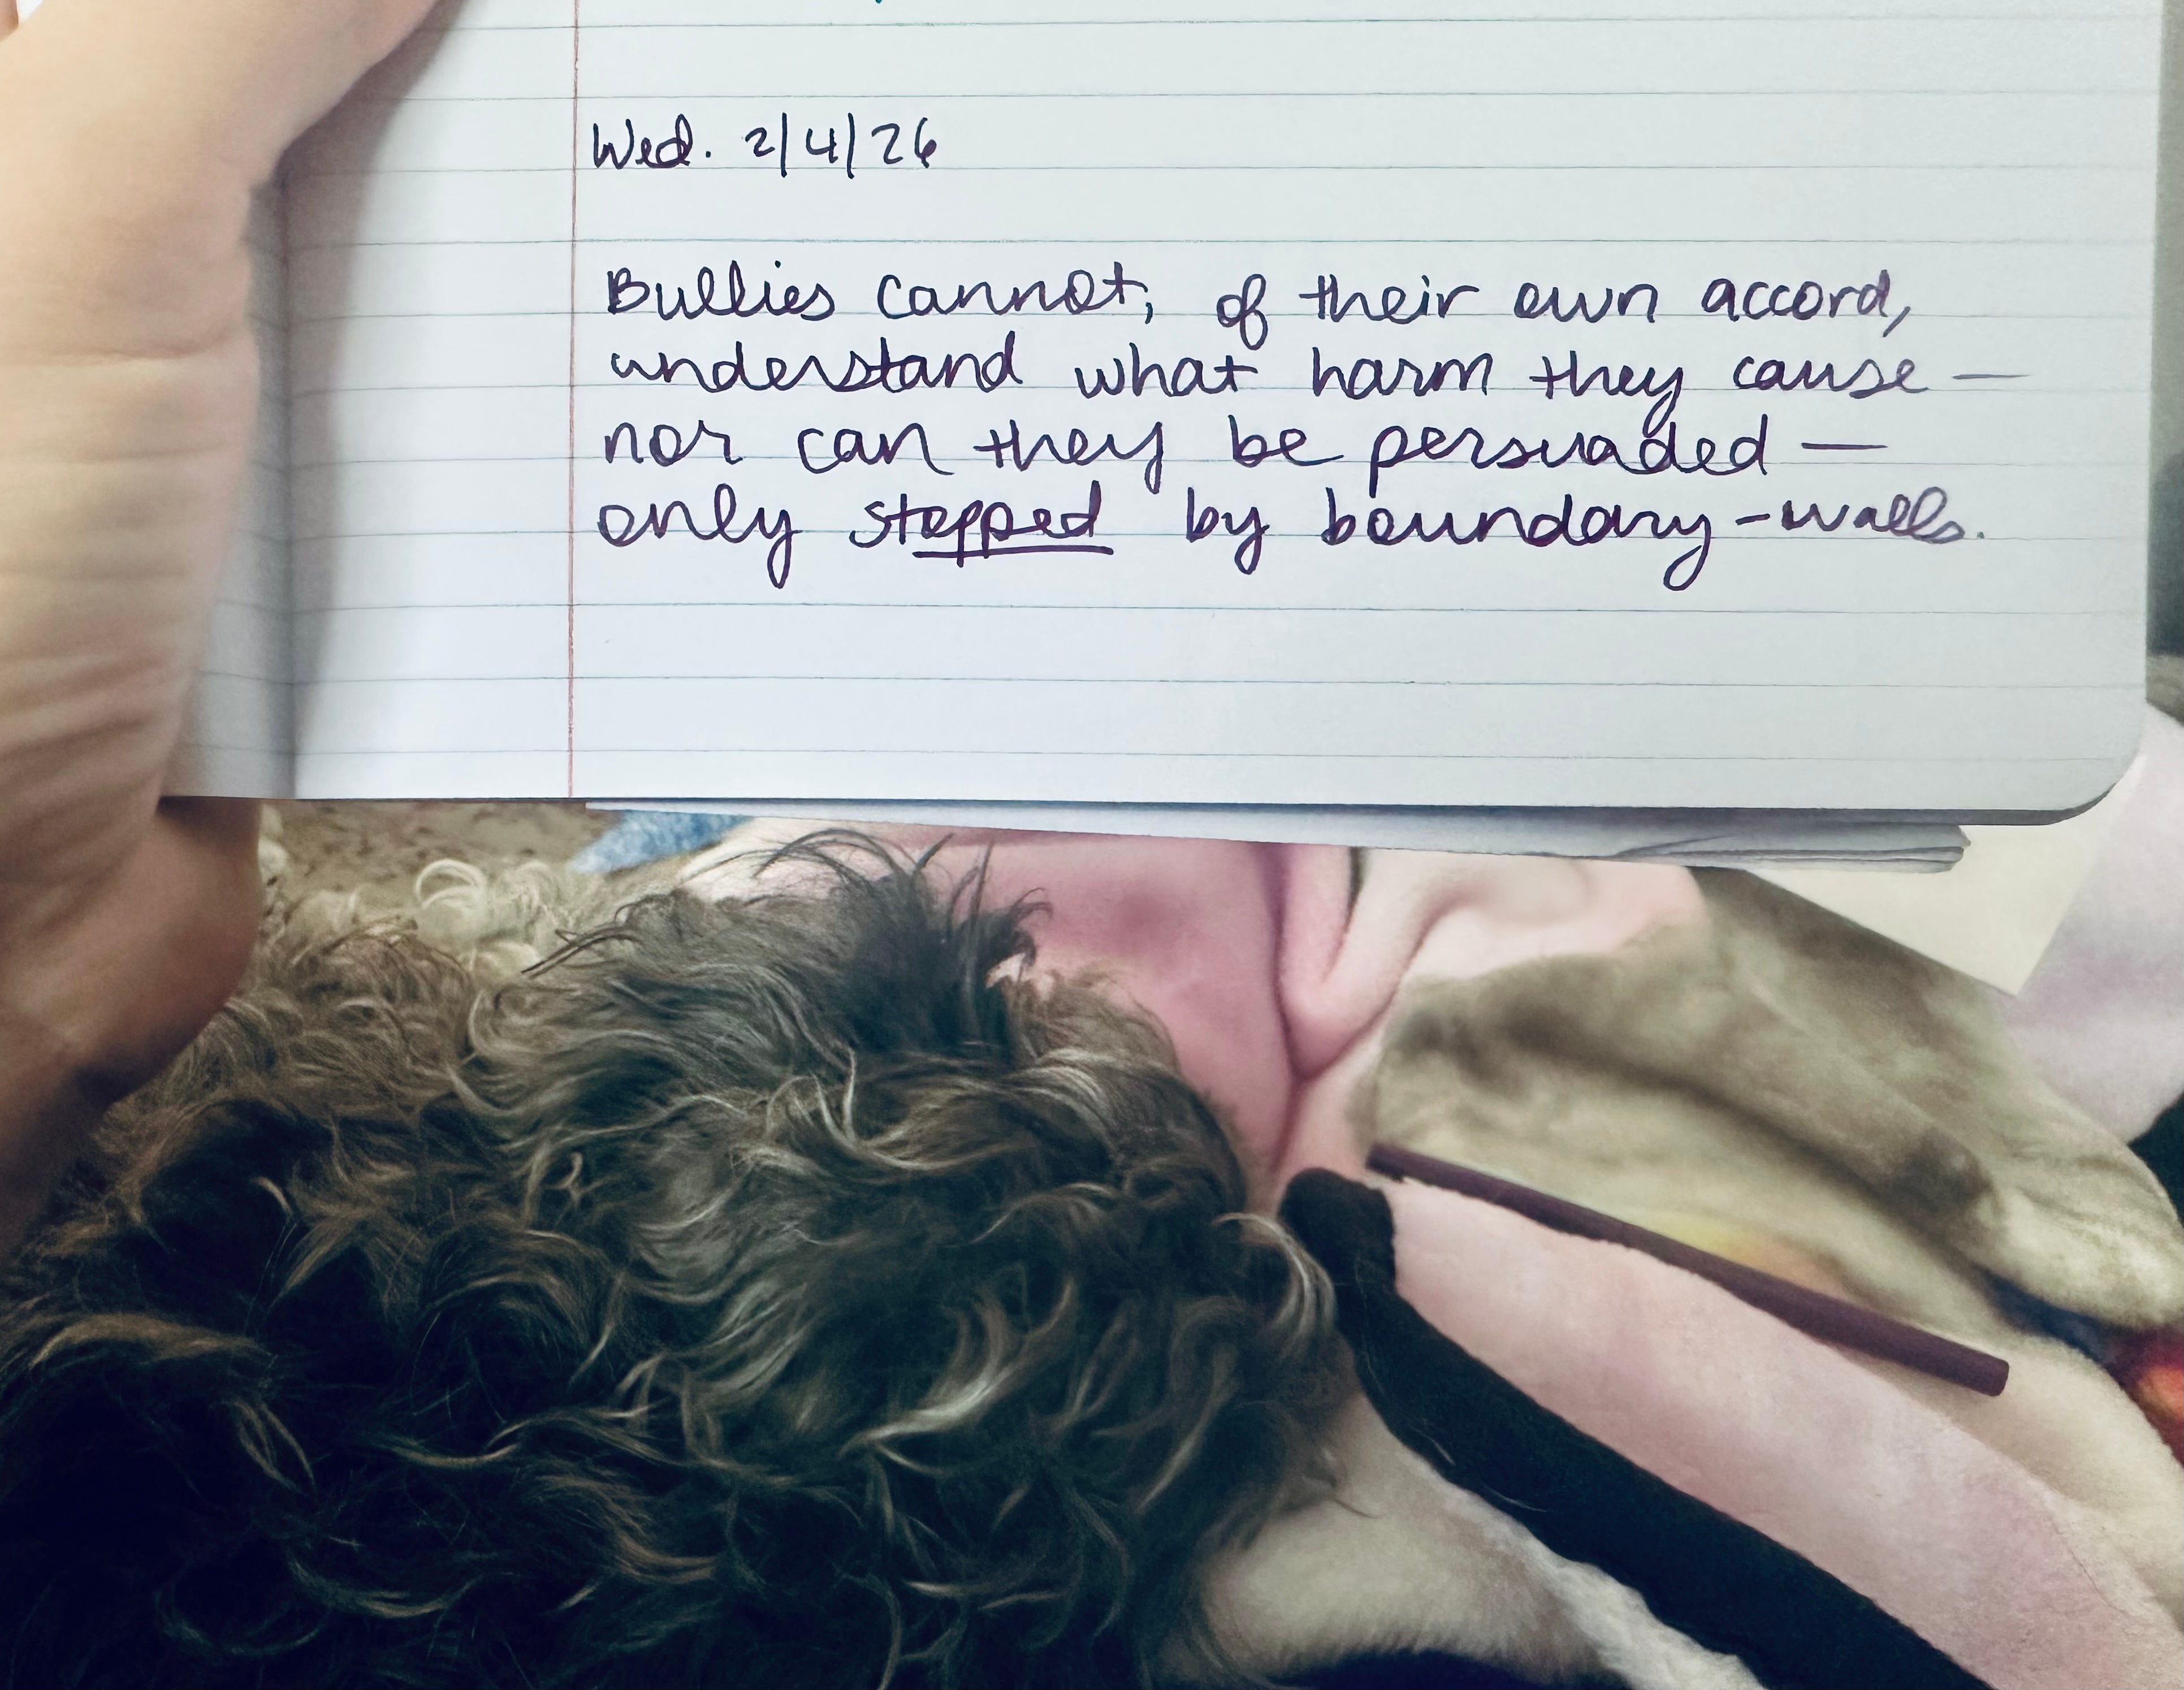 Wed. 2/4/26
Bullies cannot, of their own accord,
understand what harm they cause —
nor can they be persuaded —
only stopped by boundary-walls.